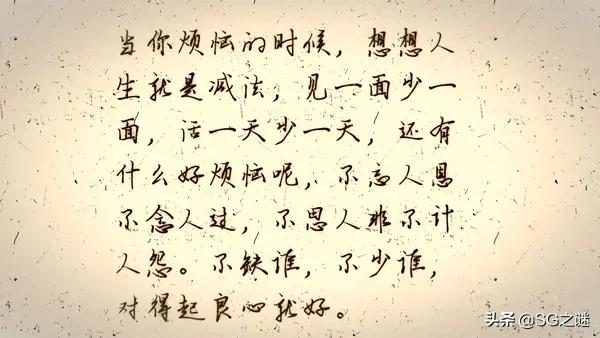 当你烦恼的时候，想想人
生就是减法，见一面少一
面，活一天少一天，还有
什么好烦恼呢，不忘人恩
不念人过，不思人非不计
人怨。不缺谁，不少谁，
对得起良心就好。
头条 @SG之谜